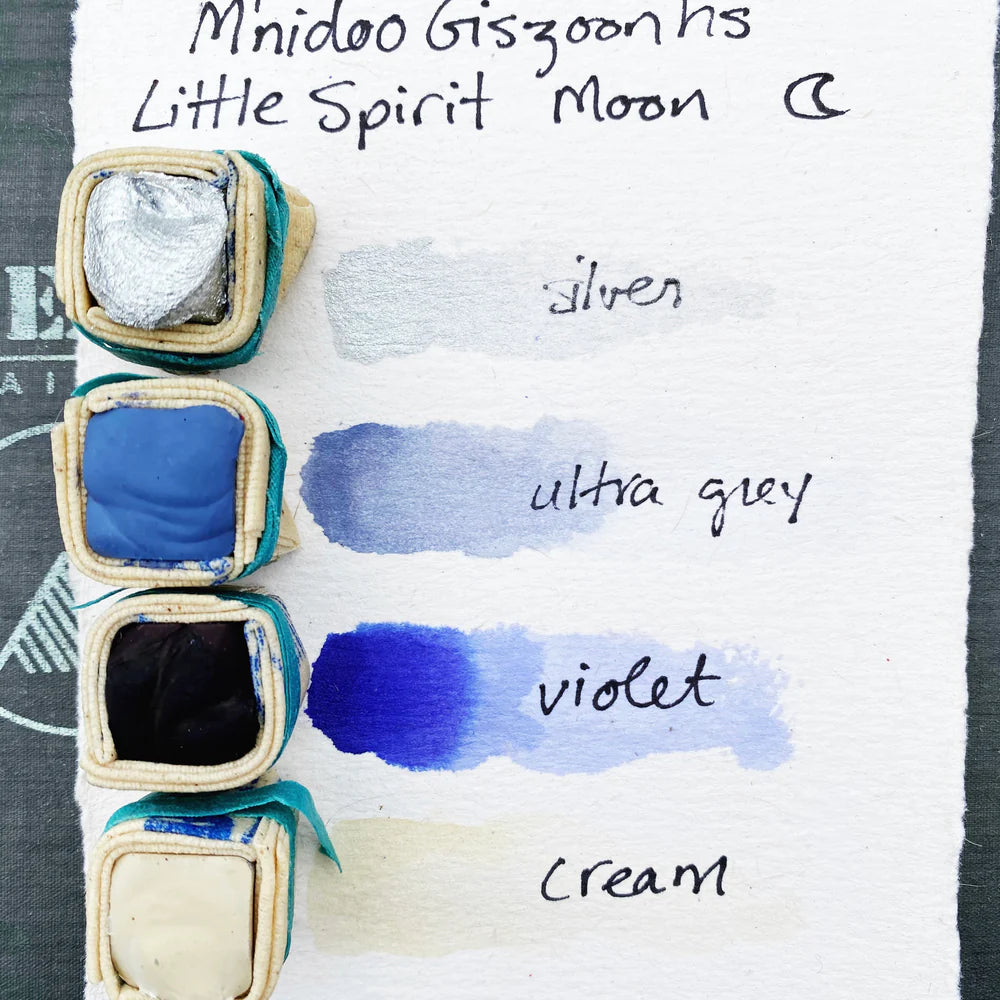 M'nidoo Giszoonhs
Little Spirit Moon
silver
ultra grey
violet
cream
E
AI